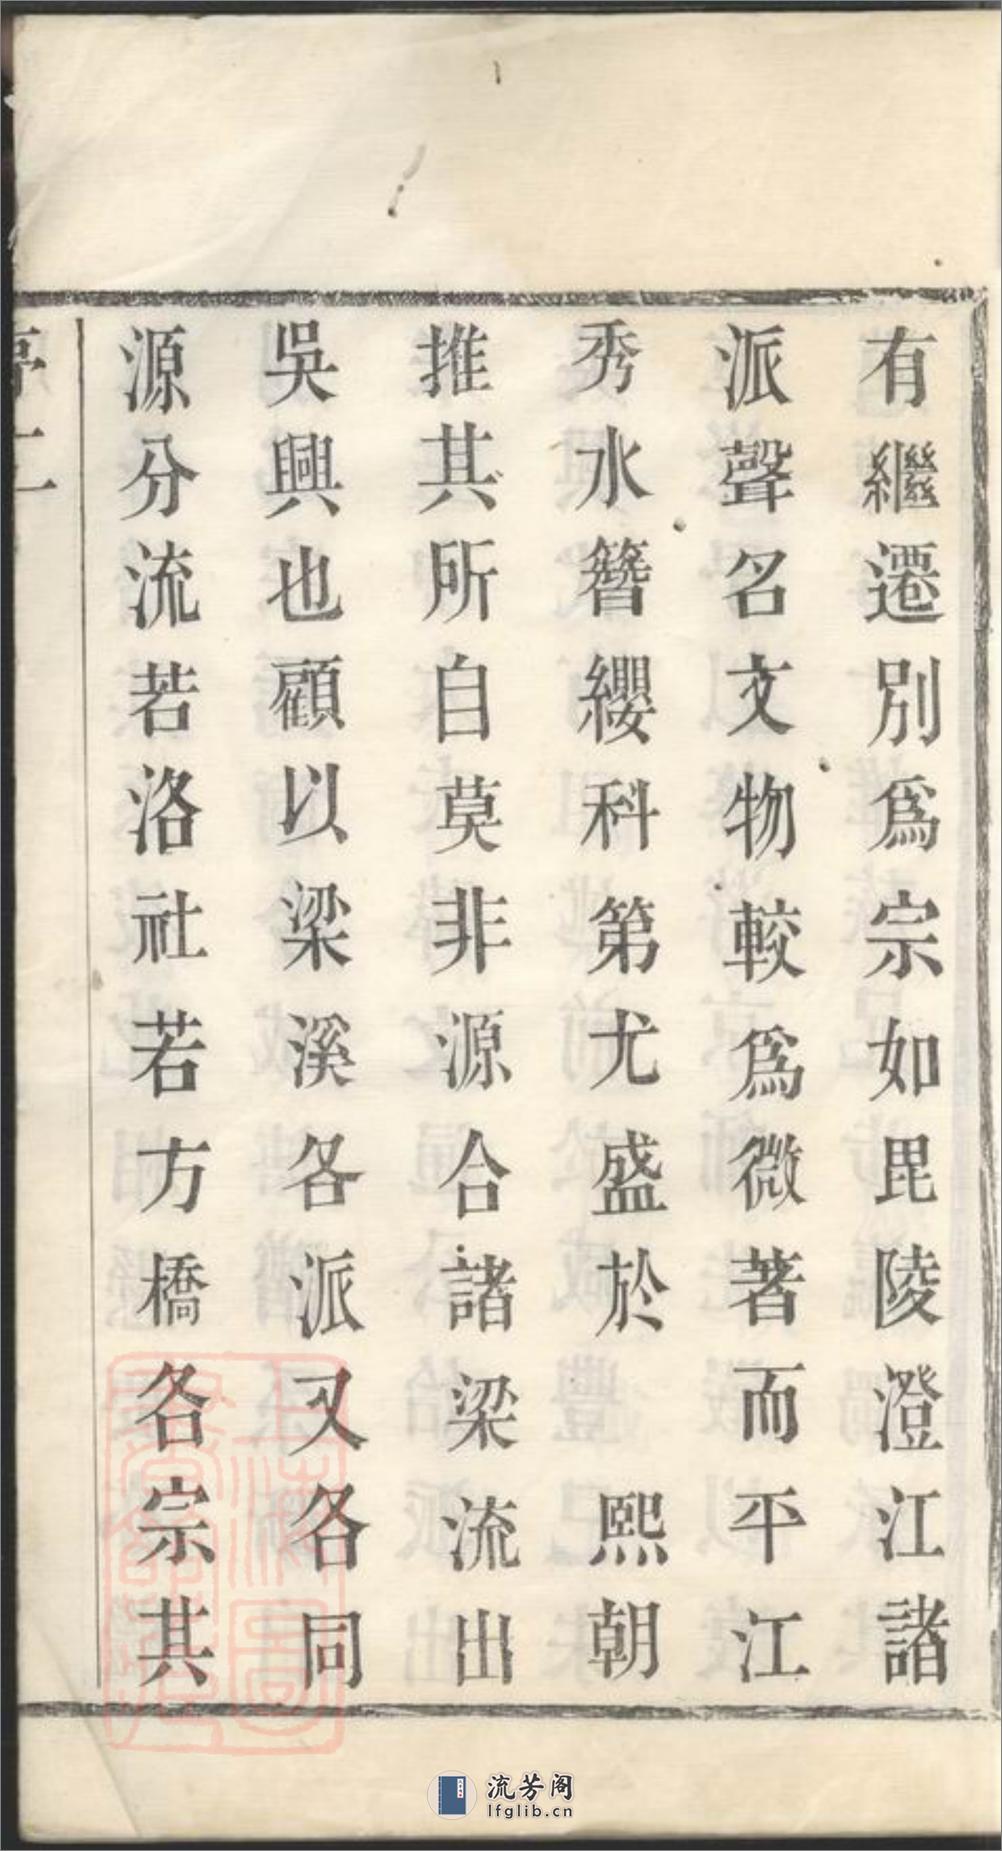 有繼遷別爲宗如毘陵澄江諸
派聲名文物較爲微著而平江
秀水簪纓科第尤盛於 熙朝
推其所自莫非源合諸梁流出
吳興也顧以梁溪各派又各同
源分流若洛社若方橋各宗其
流芳阁
lfglib.cn